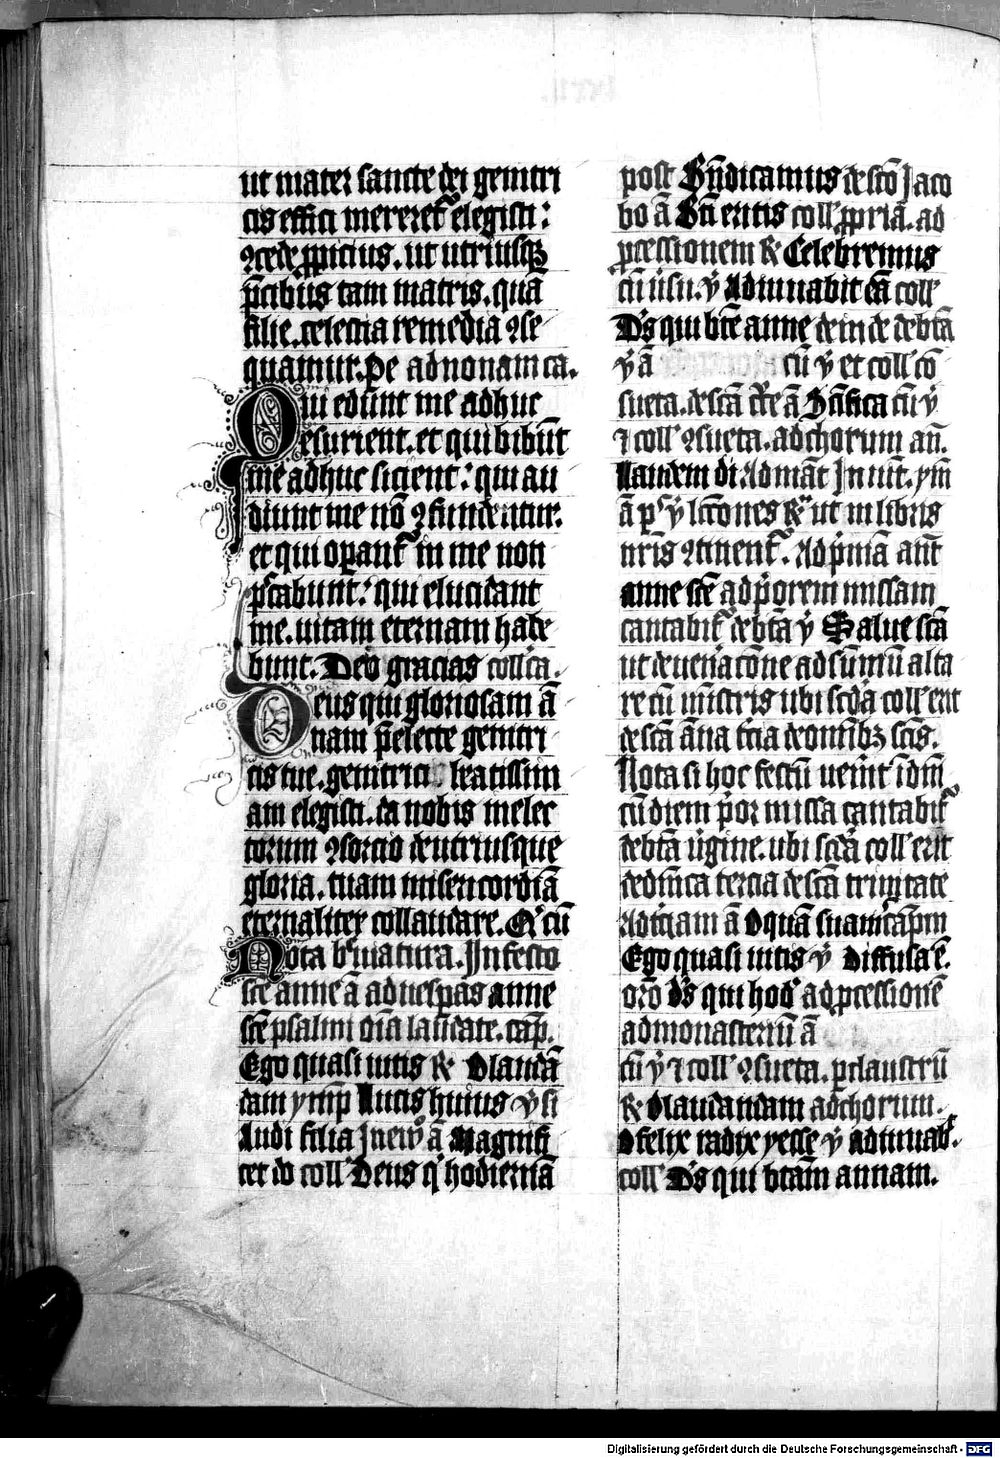 ut mater sancte dei genitri
cis effici mereret᷑ elegisti:
ꝯcede ꝓpicius. ut utriusqꝫ
p̄cibus tam matris. quā
filie. celestia remedia ꝯse
quamur. Pe ad nonam ca.
Qui edunt me adhuc
esurient. et qui bibūt
me adhuc sicient: qui au
diunt me nō ꝯfundentur.
et qui oꝑant᷑ in me non
pc̄cabunt: qui elucidant
me. uitam eternam habe
bunt. Deo gracias coll'ca.
Deus qui gloriosam ā
nam p̄electe genitri
cis tue. genitrici beatissim
am elegisti. da nobis me lec
torum ꝯsorcio de utriusque
gloria. tuam misericordiā
eternaliter collaudare. Q' cū
Nota b' matura. In festo
sc̄e anne ā ad uesp̄as anne
sc̄e psalmi oīa laudate. cap̄.
Ego quasi uitis ℟ O laudā
dam ymp̄ Lucis huius ℣ si
Audi filia In eu͞o ā Magnifi
cet do coll' Deus q' hodiernā
post Bn̄dicamus de scō Jaco
bo ā Bn̄ eritis coll' ꝓpriā. ad
ꝓcessionem ℟ Celebremus
cū ūsu. ℣ Adiuuabit eā coll'
D's qui bt̄e anne dein de de bt̄a
℣ ā cū ℣ et coll' cō
sueta. de scā cͬce ā Sc̄ifica cū ℣
⁊ coll' ꝯsueta. ad chorum an̄.
Laudem di. Ad mat̄ Inuit̄. ym̄
ā p's ℣ lcc̄ones ℟ ut in libris
nr̄is ꝯtinent᷑. Ad p'mā ant̄
anne sc̄e ad p'orem missam
cantabit᷑ de bt̄a ℣ Salue sc̄a
ut de ueīacōne ad sūmū alta
re cū mīstris ubi scd̄a coll' erit
de scā āna tc̄ia de omībꝫ sc̄is.
Nota si hoc festū uen̄it ī dom̄
cū diem p'or missa cantabit᷑
de bt̄a ūgine. ubi scd̄a coll' erit
de dn̄ica tercia de scā trinitate
Ad tc̄iam ā O quā suauis cap̄m
Ego quasi uitis ℣ Diffusa ē.
or̄o D's qui hod' ad ꝓcessionē
ad monasteriū ā
cū ℣ ⁊ coll' ꝯsueta. p claustrū
℟ O laudandam ad chorum.
O felix radix yesse ℣ Adiuuab᷑.
coll' D's qui btām annam.
Digitalisierung gefördert durch die Deutsche Forschungsgemeinschaft - DFG